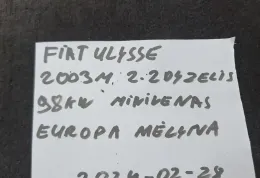 FIAT ULYSSE
2003M. 2.2DYZELIS
98KW MINIVENAS
EUROPA MĖLYNA
2024-02-28